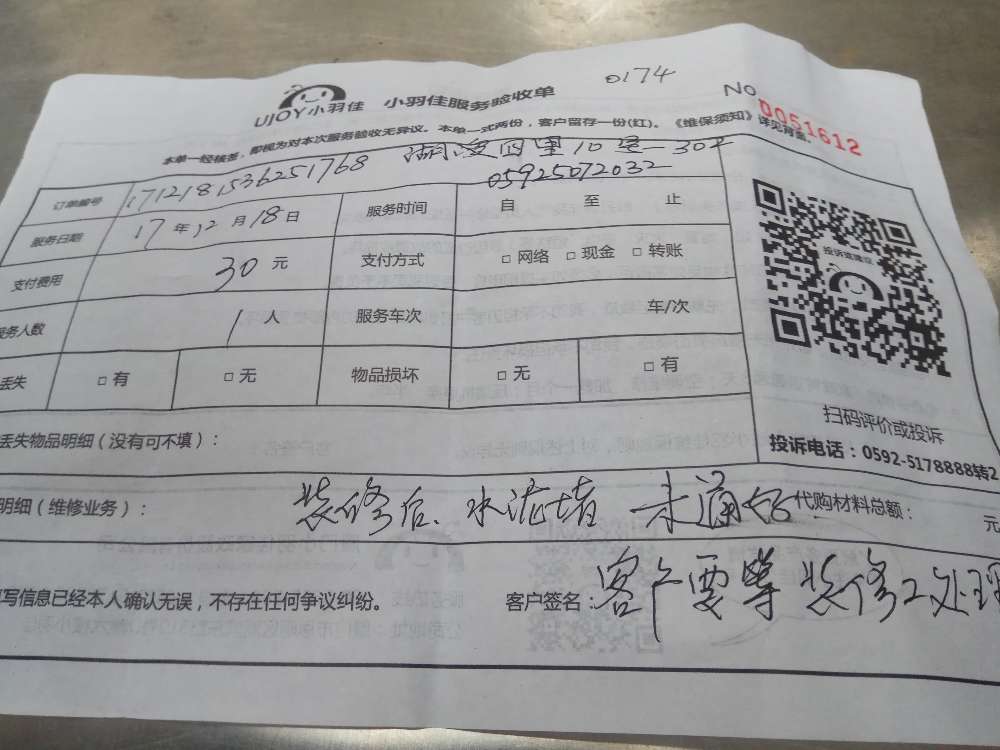 0174
UJOY小羽佳 小羽佳服务验收单 No 0051612
本单一经核签,即视为对本次服务验收无异议。本单一式两份,客户留存一份(红)。《维保须知》详见背面。
订单编号 1712181536251768 湖凌四里10号-302
05925072032
服务日期 17年12月18日 服务时间 自 至 止
支付费用 30元 支付方式 □ 网络 □ 现金 □ 转账
服务人数 1人 服务车次 车/次
丢失 □ 有 □ 无 物品损坏 □ 无 □ 有
投诉或建议
扫码评价或投诉
投诉电话:0592-5178888转2
丢失物品明细(没有可不填):
明细(维修业务): 装修后、水泥堵 未通好 代购材料总额: 元
写信息已经本人确认无误,不存在任何争议纠纷。 客户签名: 客户要等装修工处理